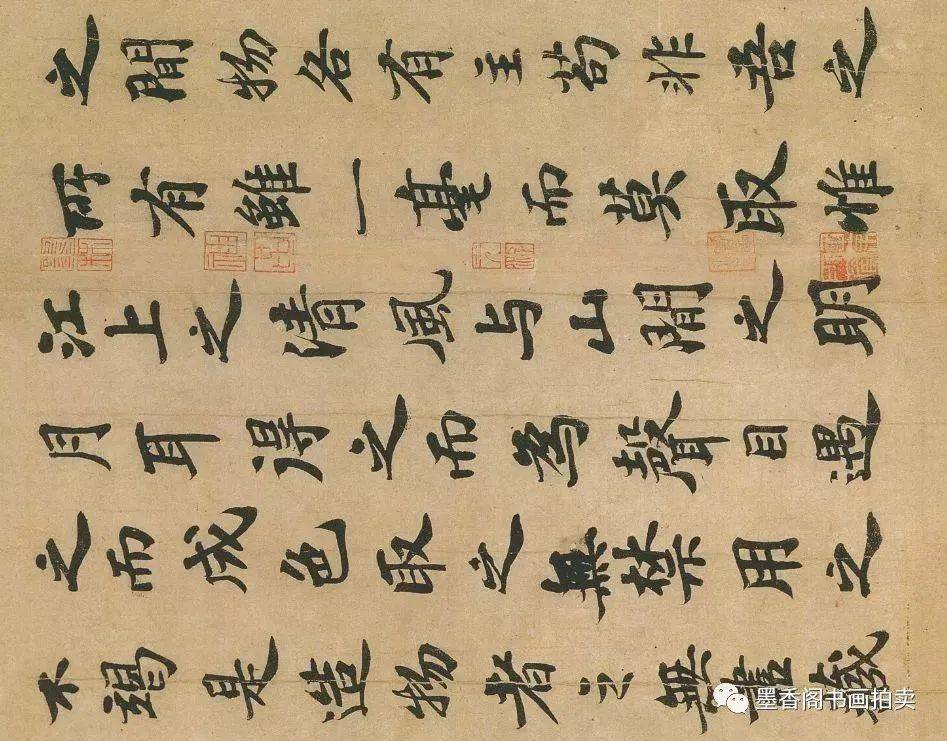 之間物各有主苟非吾之
所有雖一毫而莫取惟
江上之清風与山間之明
月耳得之而為聲目遇
之而成色取之無禁用之
不竭是造物者之無盡藏
墨香阁书画拍卖